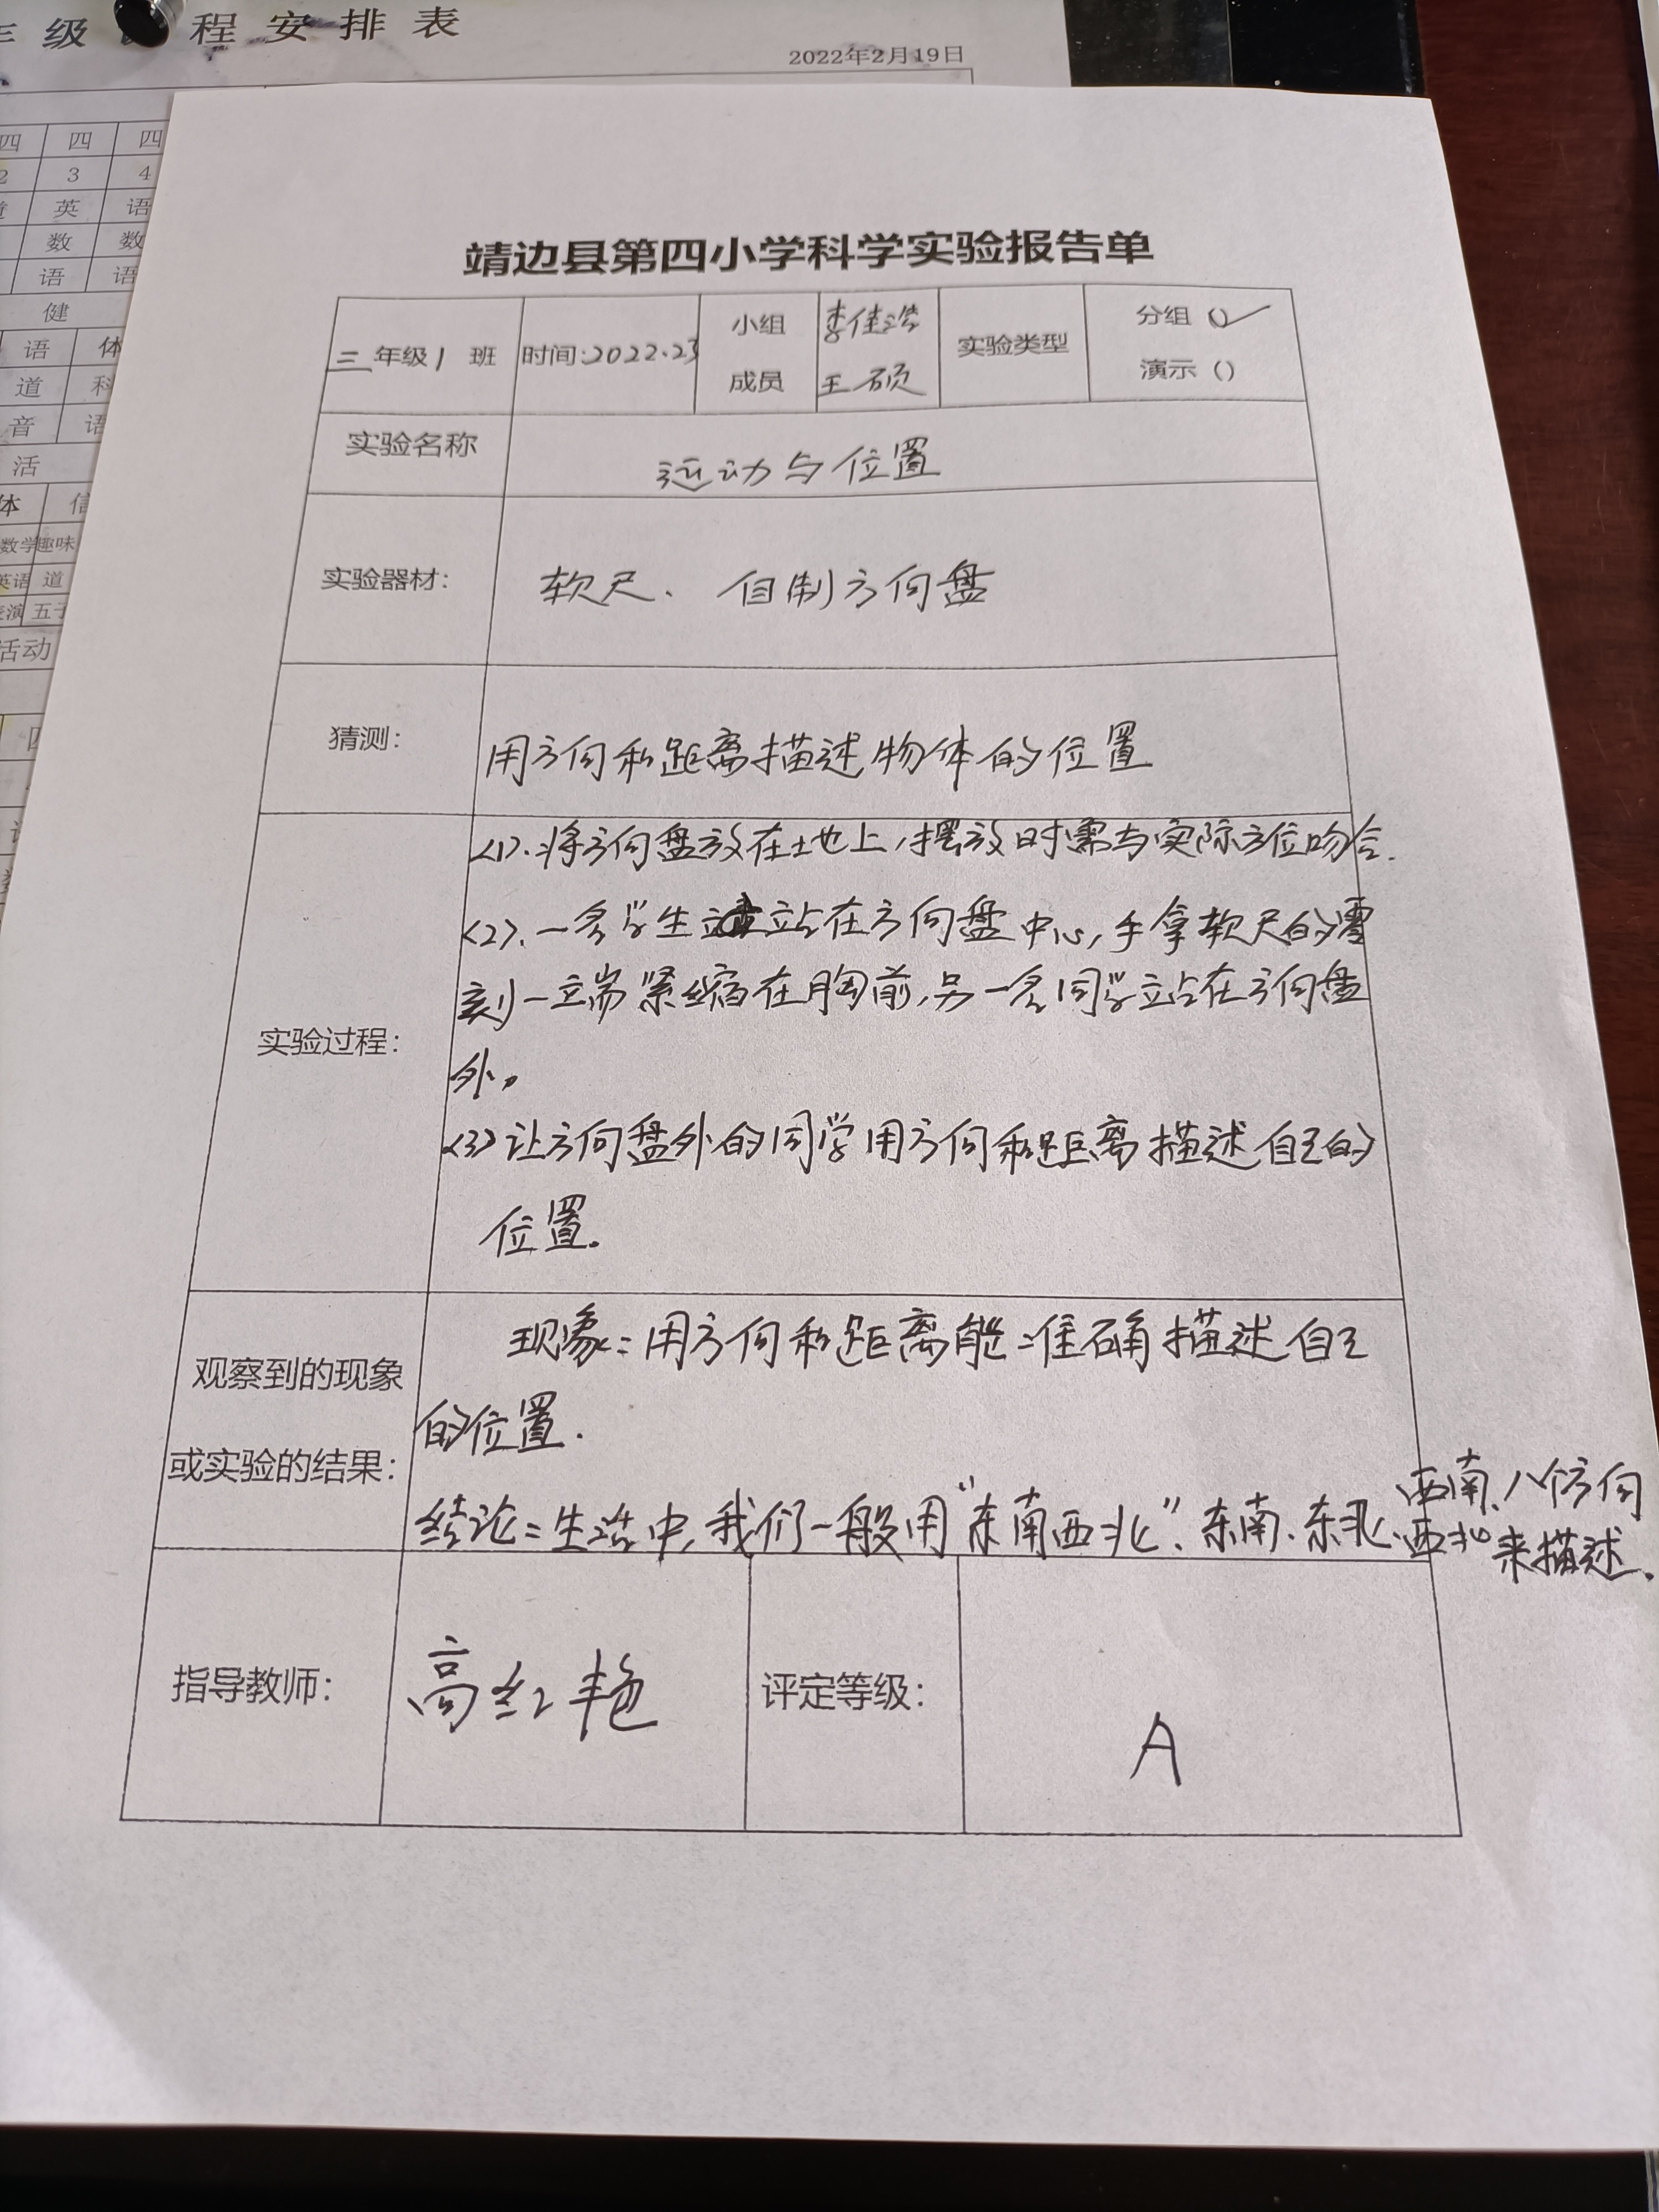 年级
程安排表
2022年2月19日
四 四 四
2 3 4
英 语
数 数
语 语
健
语 体
道 科
音 语
活
体 信
数学 趣味
英语 道
表演 五子
活动
靖边县第四小学科学实验报告单
三年级1 班
时间:2022.23
小组
成员
李佳浩
王硕
实验类型
分组 () ✓
演示 ()
实验名称
运动与位置
实验器材:
软尺、 自制方向盘
猜测:
用方向和距离描述物体的位置
实验过程:
<1>.将方向盘放在土地上,摆放时需与实际方位吻合.
<2>.一名学生站在方向盘中心,手拿软尺的零
刻一端紧缩在胸前,另一名同学站在方向盘
外。
<3>让方向盘外的同学用方向和距离描述自己的
位置.
观察到的现象
或实验的结果:
现象:用方向和距离能准确描述自己
的位置.
结论:生活中,我们一般用"东南西北"、东南、东北、西南、西北八个方向
来描述.
指导教师:
高红艳
评定等级:
A